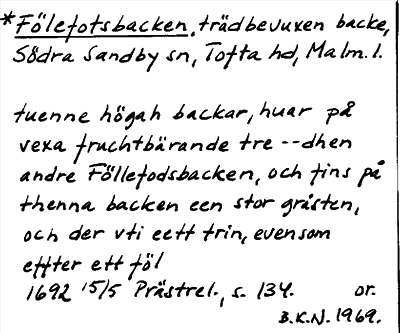 *Fölefotsbacken, trädbevuxen backe,
Södra Sandby sn, Torna hd, Malm. l.
tuenne högah backar, huar på
vexa fruchtbärande tre -- dhen
andre Föllefodsbacken, och fins på
thenna backen een stor gråsten,
och der vti eett frin, evensom
effter ett föl
1692 15/5 Prästrel., s. 134. or.
B.K.N. 1969.